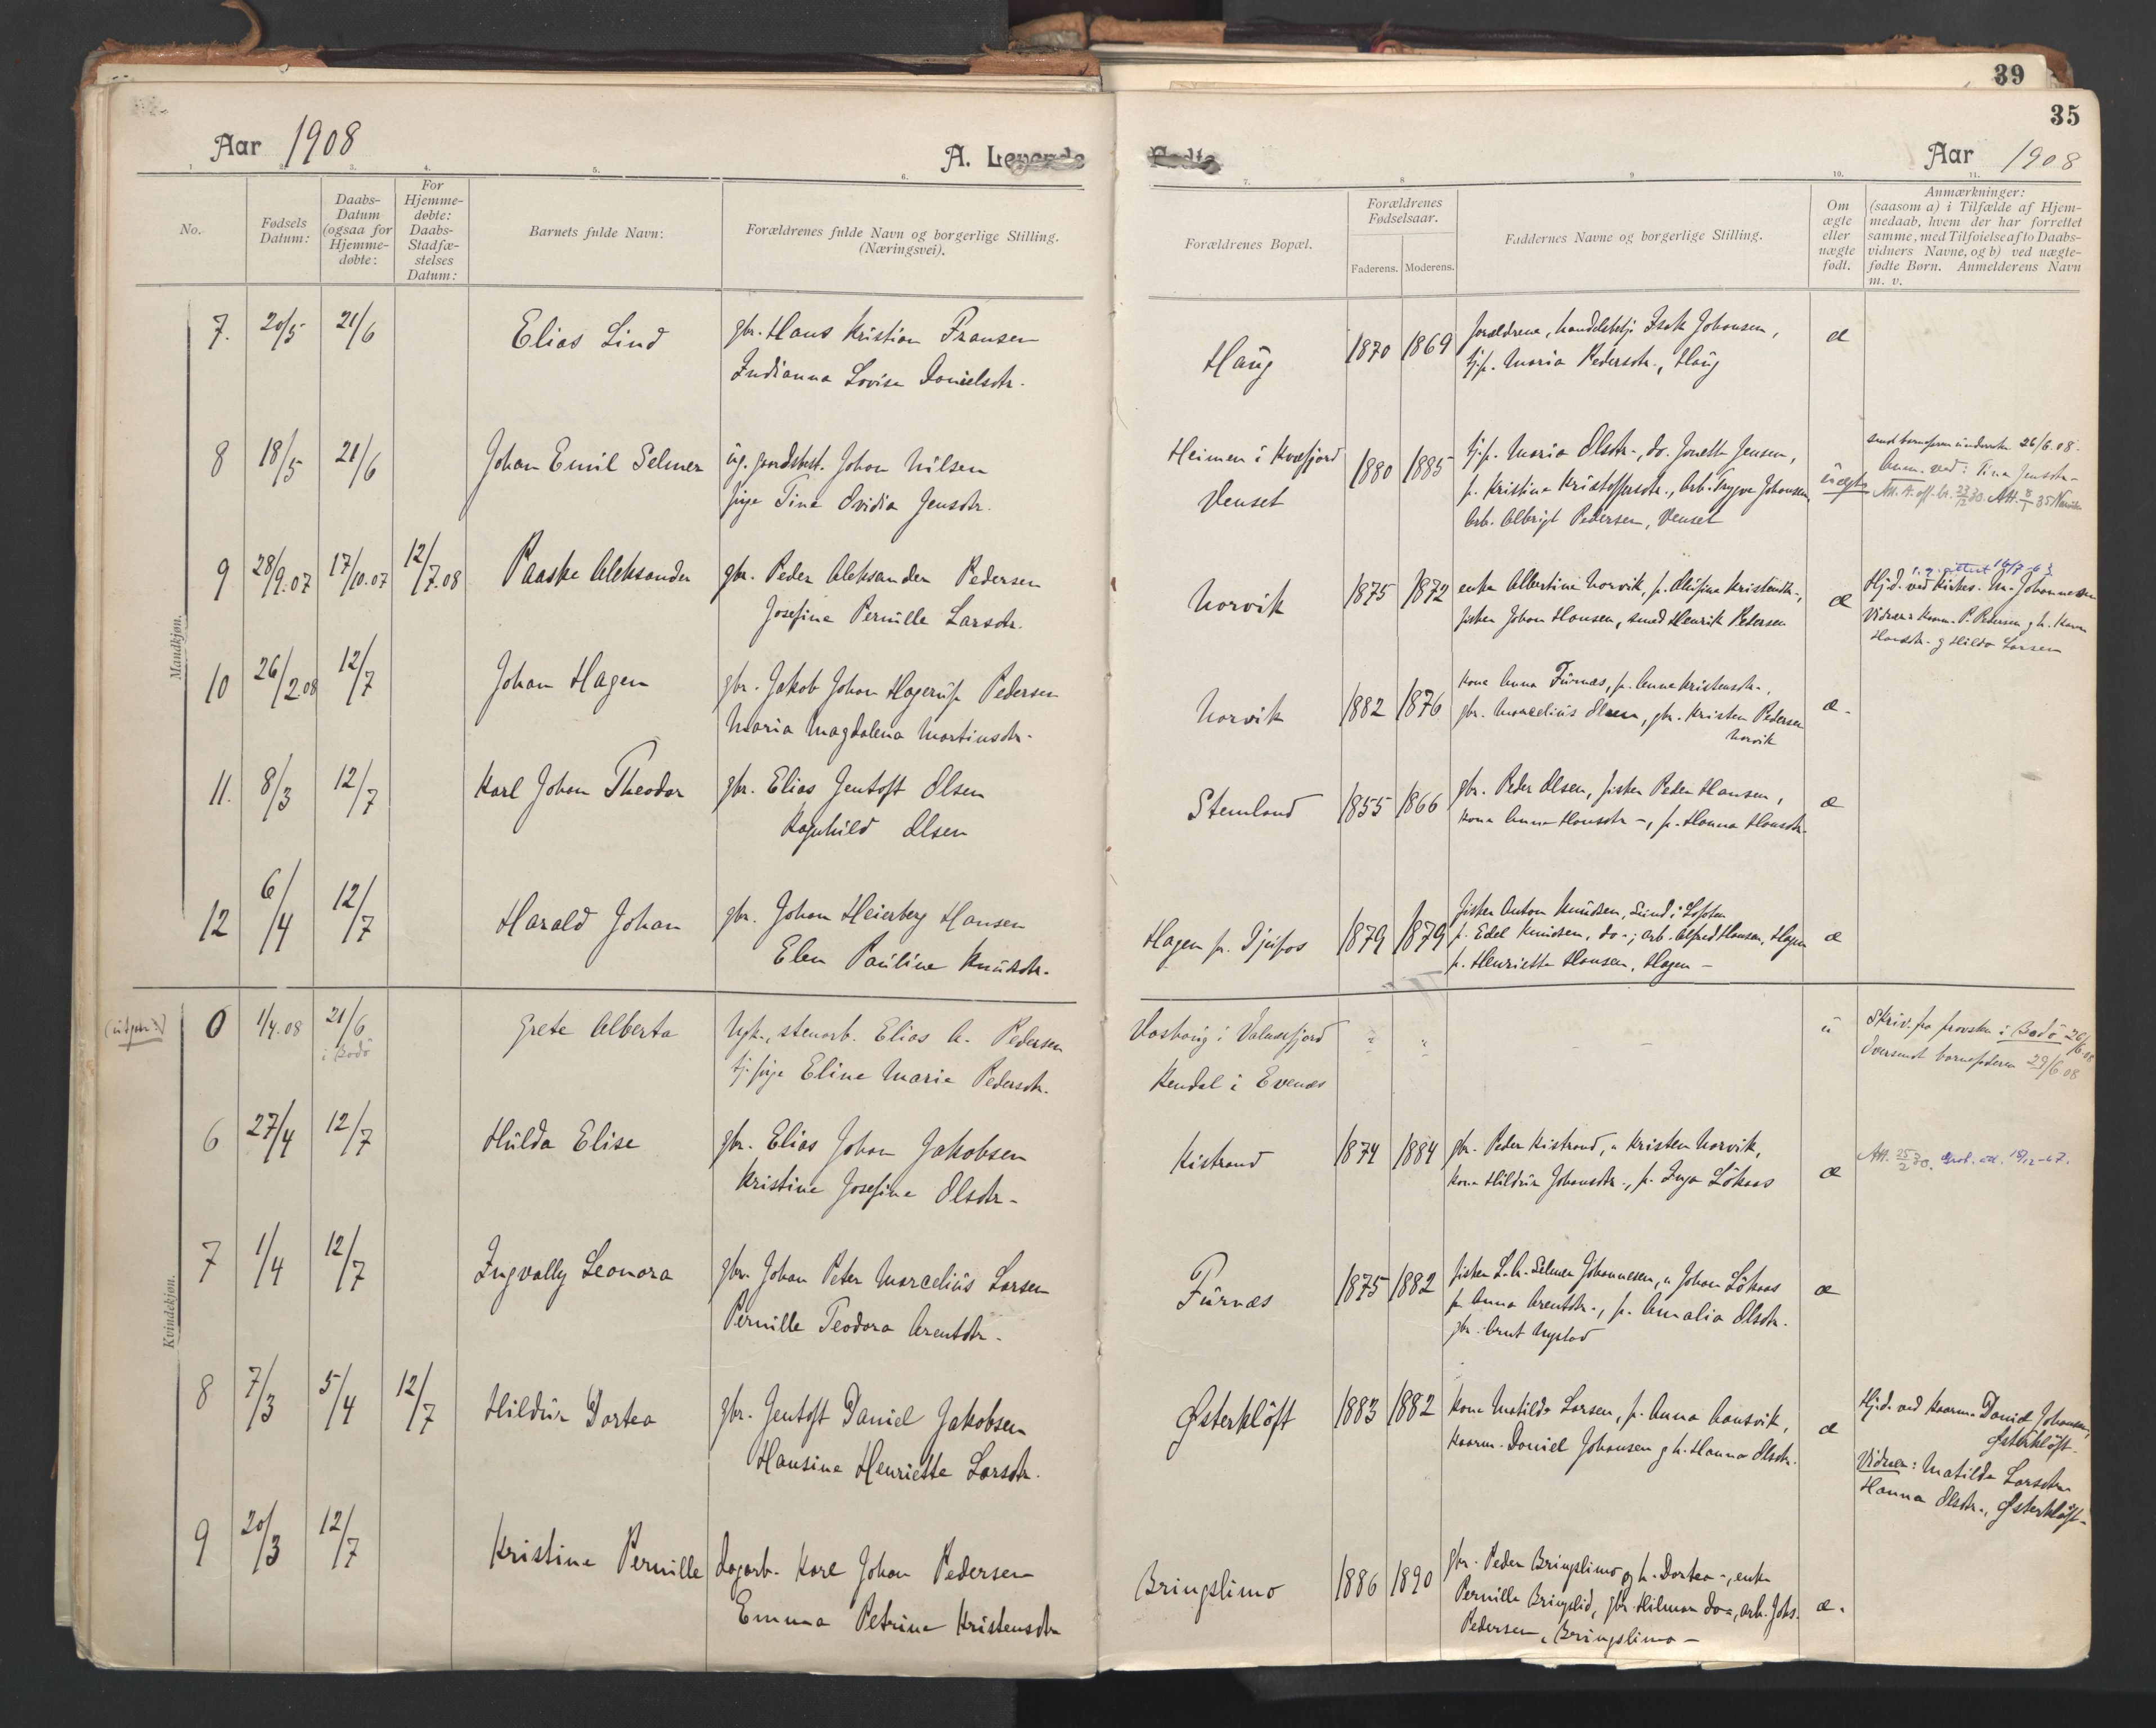 39
35
Aar 1908
A. Levende
Fødte
Aar 1908
1. 2. 3. 4. 5. 6. 7. 8 9 10. 11.
No.
Fødsels Datum:
Daabs-Datum (ogsaa for Hjemme-døbte:
For Hjemme-døbte: Daabs-Stadfæ-stelses Datum:
Barnets fulde Navn:
Forældrenes fulde Navn og borgerlige Stilling. (Næringsvei).
Forældrenes Bopæl.
Forældrenes Fødselsaar.
Faderens. Moderens.
Faddernes Navne og borgerlige Stilling.
Om ægte eller uægte født.
Anmærkninger:
(saasom a) i Tilfælde af Hjem-
medaab, hvem der har forrettet
samme, med Tilføielse af to Daabs-
vidners Navne, og b) ved uægte-
fødte Børn. Anmelderens Navn
m. v.
Mandkjøn.
7. 20/5 21/6 Elias Lind
gbr. Hans Kristian Fransen
Indianna Lovise Danielsdtr.
Haug 1870 1869
forældrene, handelsbetj. Isak Johansen,
tj.p. Maria Pedersdtr., Haug
æ
8 18/5 21/6 Johan Emil Selmer
ug. gaardsbest. Johan Nilsen
pige Tina Ovidia Jensdtr.
Heimen i Kvæfjord
Venset
1880 1885
tj.p. Maria Olsdtr., do. Jonette Jensen,
p. Kristina Kristoffersdtr., Arb. Trygve Johansen
Arb. Albrigt Pedersen, Venset
uægte
26/6.08.
Anm. ved: Tina Jensdtr.
9 28/9.07 17/10.07 12/7.08 Paaske Aleksander
gbr. Peder Aleksander Pedersen
Josefine Pernille Larsdtr.
Norvik 1875 1872
enke Albertine Norvik, p. Kristensdtr.,
fisker Johan Hansen, smed Henrik Petersen
æ
Hjd. ved Kirkes. M. Johannesen
Vidner: Kaarm. P. Pedersen g h. Karen
Hansdtr. g Hilda Larsen
10 26/2.08 12/7 Johan Hagen
gbr. Jakob Johan Hagerup Pedersen
Maria Magdalena Martinsdtr.
Norvik 1882 1876
Kone Anna Furnæs, p. Anna Kristensdtr.,
gbr. Marcelius Olsen, gbr. Kristen Pedersen
Norvik
æ.
11. 8/3 12/7 Karl Johan Theodor
gbr. Elias Jentoft Olsen
Ragnhild Olsen
Stemland 1855 1866
gbr. Peder Olsen, fisker Peder Hansen,
Kone Anna Hansdtr., p. Hanna Hansdtr.
æ
12 6/4 12/7 Harald Johan
gbr. Johan Heierberg Hansen
Elen Pauline Knutsdtr.
Hagen pr. Djupos 1879 1879
fisker Anton Knudsen, Sund i Lofoten
p. Edel Knudsen, do.; arb. Alfred Hansen, Hagen
p. Henriette Hansen, Hagen
æ
Kvindekjøn.
0 1/4.08 21/6 i Bodø Grete Alberta
Ugk., stenarb. Elias A. Pedersen
tj. pige Eline Marie Pedersdtr.
Vasshaug i Valnesfjord
Kendal i Evenæs
u
Skriv. fra provsten i Bodø 26/6.08
Oversendt barnefaderen 29/6.08
6 27/4 12/7 Hulda Elise
gbr. Elias Johan Jakobsen
Kristine Josefine Olsdtr.
Kistrand 1874 1884
gbr. Peder Kistrand, " Kristen Norvik,
Kone Hildur Johansdtr., p. Inga Løkaas
æ
Att. 25/2 30.
7 1/4 12/7 Ingvally Leonora
gbr. Johan Peter Marcelius Larsen
Pernille Teodora Arentsdtr.
Furnæs 1875 1882
fisker L. A. Selmer Johannesen, " Johan Løkaas
p. Anna Arentsdtr., p. Amalia Olsdtr.
gbr. Arnt Nystad
æ
8 7/3 5/4 12/7 Hildur Dortea
gbr. Jentoft Daniel Jakobsen
Hansine Henriette Larsdtr.
Østerkløft 1883 1882
Kone Matilde Larsen, p. Anna Aansvik,
Kaarm. Daniel Johansen g h. Hanna Olsdtr.
æ
Hjd. ved Kaarm. Daniel Johansen,
Østerkløft.
Vidner: Matilde Larsdtr.
Hanna Olsdtr., Østerkløft
9 20/3 12/7 Kristine Pernille
Dagarb. Karl Johan Pedersen
Emma Petrine Kristensdtr
Bringslimo 1886 1890
gbr. Peder Bringslimo og h. Dortea, enke
Pernille Bringslid, gbr. Hilmar do., arb. Johs.
Pedersen, Bringslimo
æ.